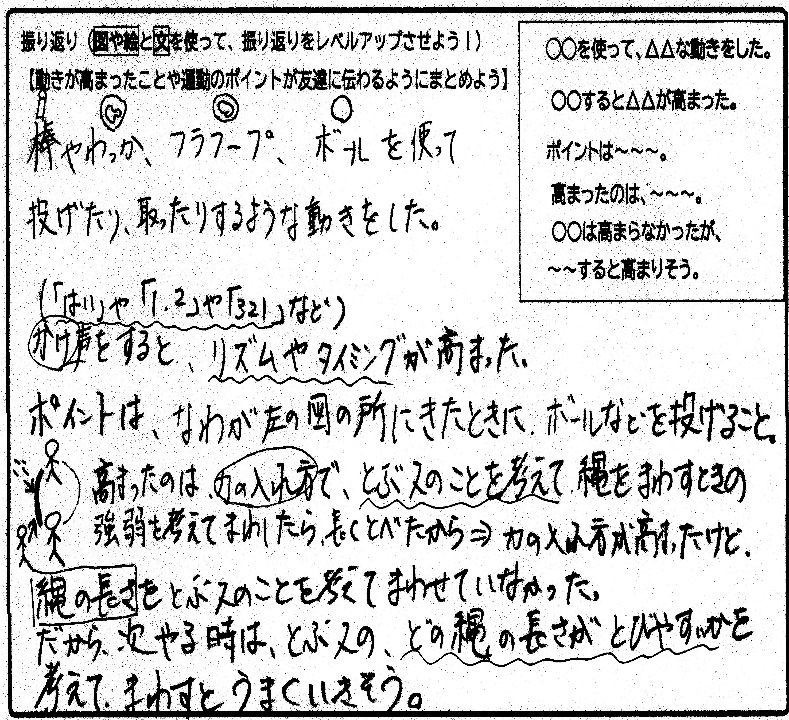 振り返り（図や絵と文を使って、振り返りをレベルアップさせよう！）
【動きが高まったことや運動のポイントが友達に伝わるようにまとめよう】
○○を使って、△△な動きをした。
○○すると△△が高まった。
ポイントは～～～。
高まったのは、～～～。
○○は高まらなかったが、
～～すると高まりそう。
棒やわっか、フラフープ、ボールを使って
投げたり、取ったりするような動きをした。
（「はい」や「1.2」や「321」など）
かけ声をすると、リズムやタイミングが高まった。
ポイントは、なわが左の図の所にきたときに、ボールなどを投げること。
高まったのは、力の入れ方で、とぶ人のことを考えて縄をまわすときの
強弱を考えてまわしたら、長くとべたから⇒力の入れ方が高まったけど、
縄の長さをとぶ人のことを考えてまわせていなかった。
だから、次やる時は、とぶ人の、どの縄の長さがとびやすいかを
考えて、まわすとうまくいきそう。